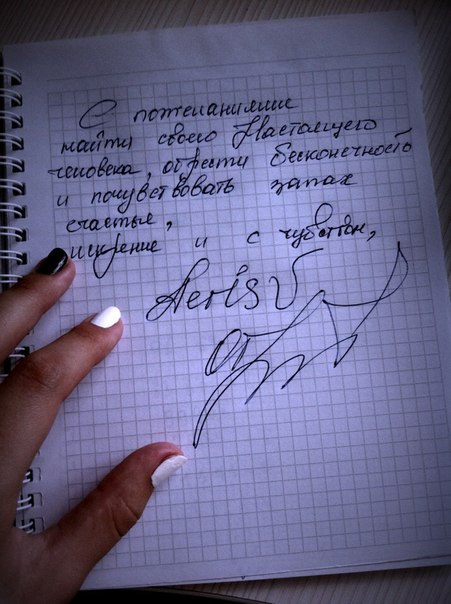 С пожеланиями
найти своего Настоящего
человека, обрести бесконечность
и почувствовать запах
счастья,
искренне и с чувством,
Aeris V